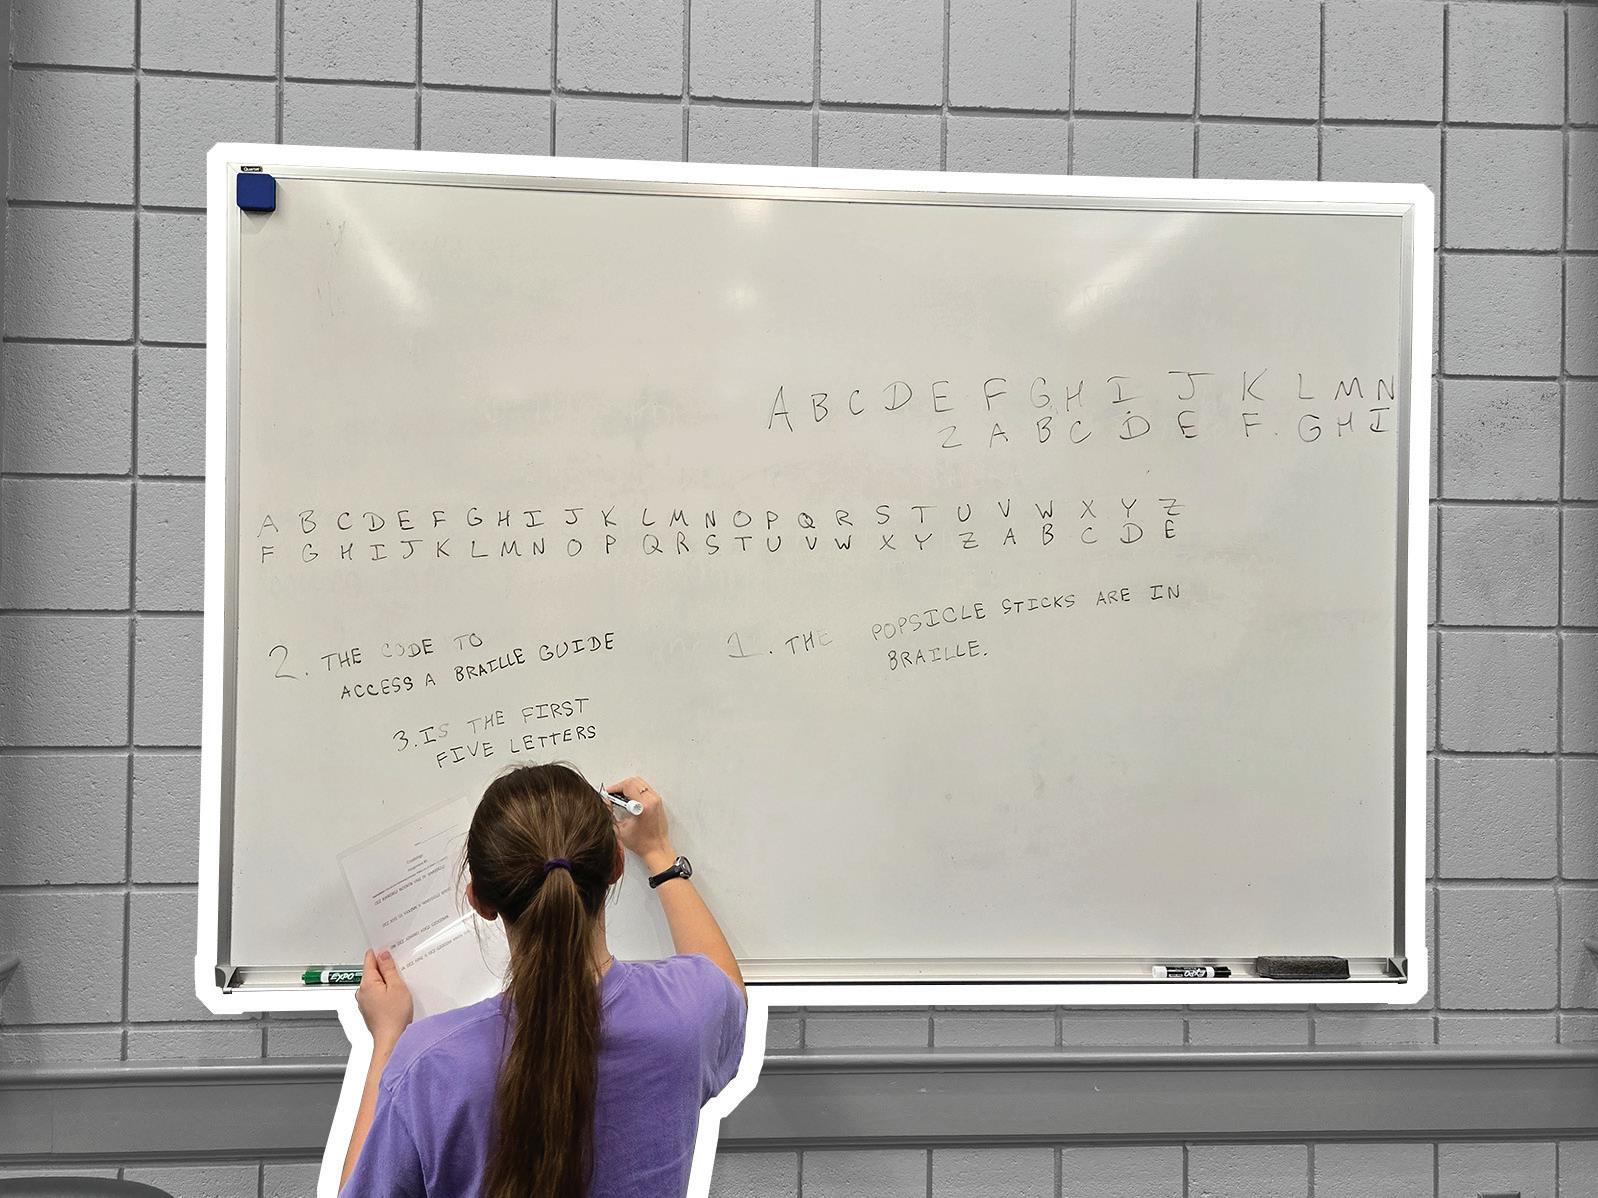 A B C D E F G H I J K L M N
Z A B C D E F. G H I
A B C D E F G H I J K L M N O P Q R S T U V W X Y Z
F G H I J K L M N O P Q R S T U V W X Y Z A B C D E
1. THE POPSICLE STICKS ARE IN
BRAILLE.
2. THE CODE TO
ACCESS A BRAILLE GUIDE
3. IS THE FIRST
FIVE LETTERS
EXPO
EXPO